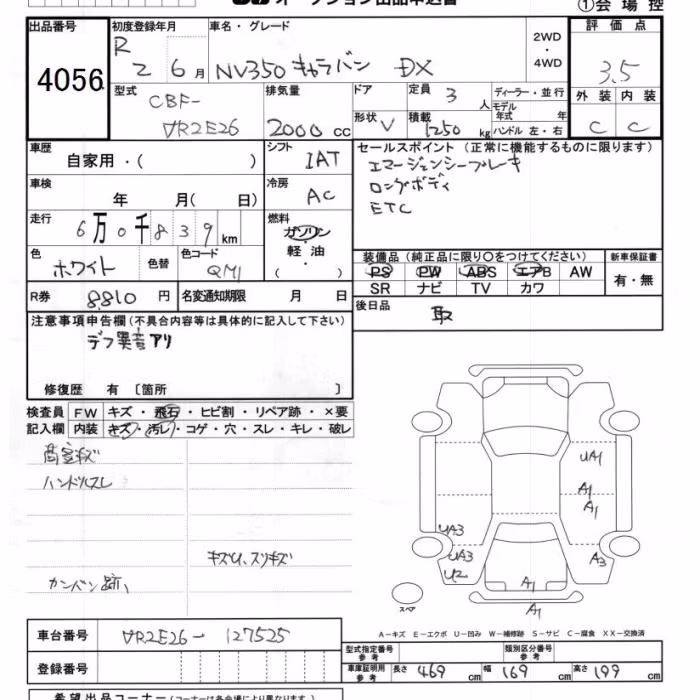 ①会場控
出品番号 初度登録年月 車名・グレード 2WD ・ 4WD 評価点
4056 R 2 6月 NV350キャラバン DX 3.5
型式 排気量 ドア 定員 3 人 ディーラー・並行 外装 内装
CBF-
VR2E26 2000 cc 形状 V 積載 1250 kg モデル年式 年 ハンドル 左・右 C C
車歴 自家用・( ) シフト IAT セールスポイント (正常に機能するものに限ります)
エマージェンシーブレーキ
ロングボディ
ETC
車検 年 月( 日) 冷房 AC
走行 6万0千839km 燃料 ガソリン・軽油・( )
色 ホワイト 色替 色コード QM1
装備品 (純正品に限り○をつけてください) 新車保証書
PS PW ABS エアB AW 有・無
SR ナビ TV カワ
R券 8,810 円 名変通知期限 月 日 後日品 取
注意事項申告欄(不具合内容等は具体的に記入して下さい)
デフ異音アリ
修復歴 有 〔箇所 〕
検査員 FW キズ・飛石・ヒビ割・リペア跡・×要
記入欄 内装 キズ・汚レ・コゲ・穴・スレ・キレ・破レ
ハンドルスレ
キズU、スリキズ
カンバン跡、
UA1
A1
A1
UA3
UA3
U2
A3
A1
A1
スペア
A−キズ E−エクボ U−凹み W−補修跡 S−サビ C−腐食 XX−交換済
車台番号 VR2E26-127525
登録番号
型式指定番号 類別区分番号
車庫証明用参考 長さ 469 cm 幅 169 cm 高さ 199 cm
希望出品コーナー(コーナーは各会場により異なります)